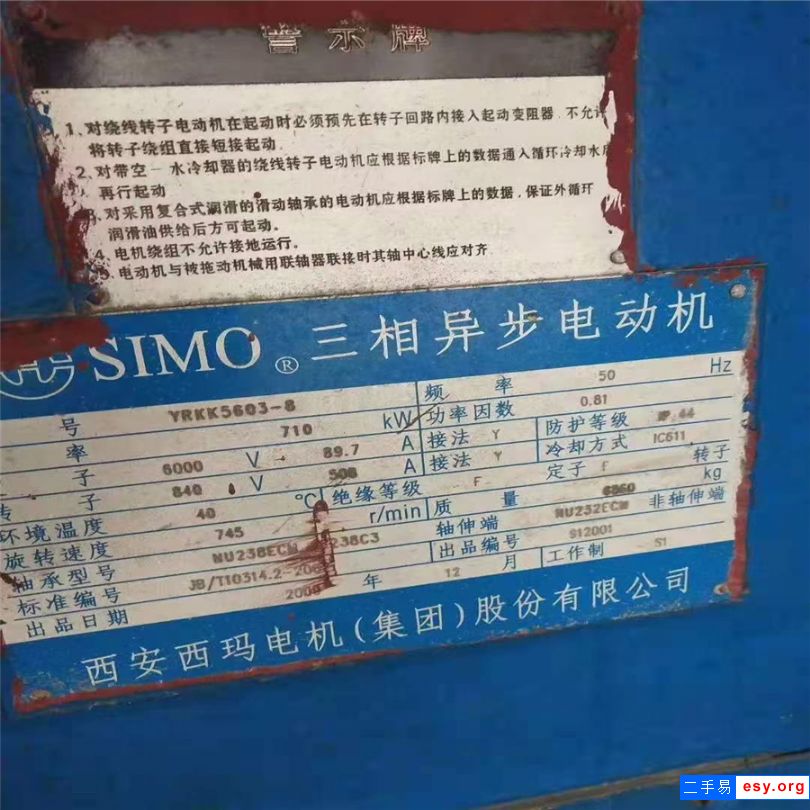 警示牌
1、对绕线转子电动机在起动时必须预先在转子回路内接入起动变阻器．不允许
将转子绕组直接短接起动．
2、对带空－水冷却器的绕线转子电动机应根据标牌上的数据通入循环冷却水后
再行起动
3、对采用复合式润滑的滑动轴承的电动机应根据标牌上的数据，保证外循环
润滑油供给后方可起动。
4、电机绕组不允许接地运行。
5、电动机与被拖动机械用联轴器联接时其轴中心线应对齐．
SIMO® 三相异步电动机
号 YRKK5603-8 频率 50 Hz
率 710 kW 功率因数 0.81
子 6000 V 89.7 A 接法 Y 防护等级 IP 44
转子 840 V 508 A 接法 Y 冷却方式 IC611
环境温度 40 ℃ 绝缘等级 F 定子 F 转子
旋转速度 745 r/min 质量 kg
轴承型号 NU238ECM 238C3 轴伸端 NU232ECM 非轴伸端
标准编号 JB/T10314.2-200 出品编号 S12001
出品日期 200 年 12 月 工作制 S1
西安西玛电机(集团)股份有限公司
二手易 esy.org